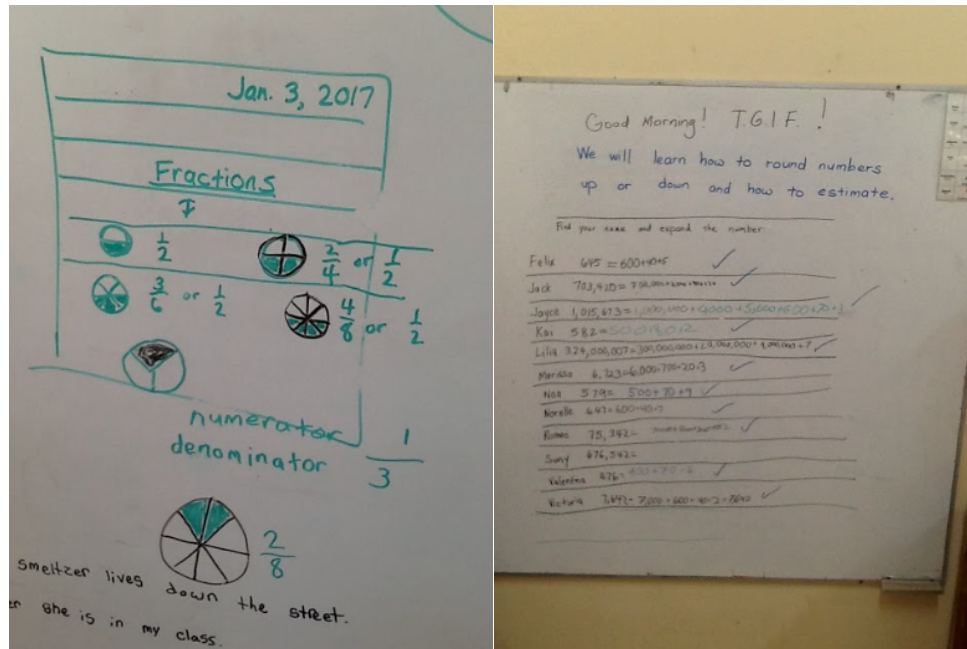 Jan. 3, 2017
Fractions
1/2
2/4 or 1/2
3/6 or 1/2
4/8 or 1/2
numerator
denominator
1/3
2/8
smeltzer lives down the street.
she is in my class.
Good Morning! T.G.I.F. !
We will learn how to round numbers
up or down and how to estimate.
Find your name and expand the number.
Felix 645 = 600+40+5
Jack 703,420=
Jayce 1,015,673=1,000,000+
Kai 582=
Lilia 324,000,007=300,000,000+20,000,000+4,000,000+7
6,723=6,000+700+20+3
Noa 579= 500+70+9
Norelle 647=600+40+7
Romeo 75,342=
Suny 676,542=
Valentina 476=
Victoria 7,642=7,000+600+40+2=7642